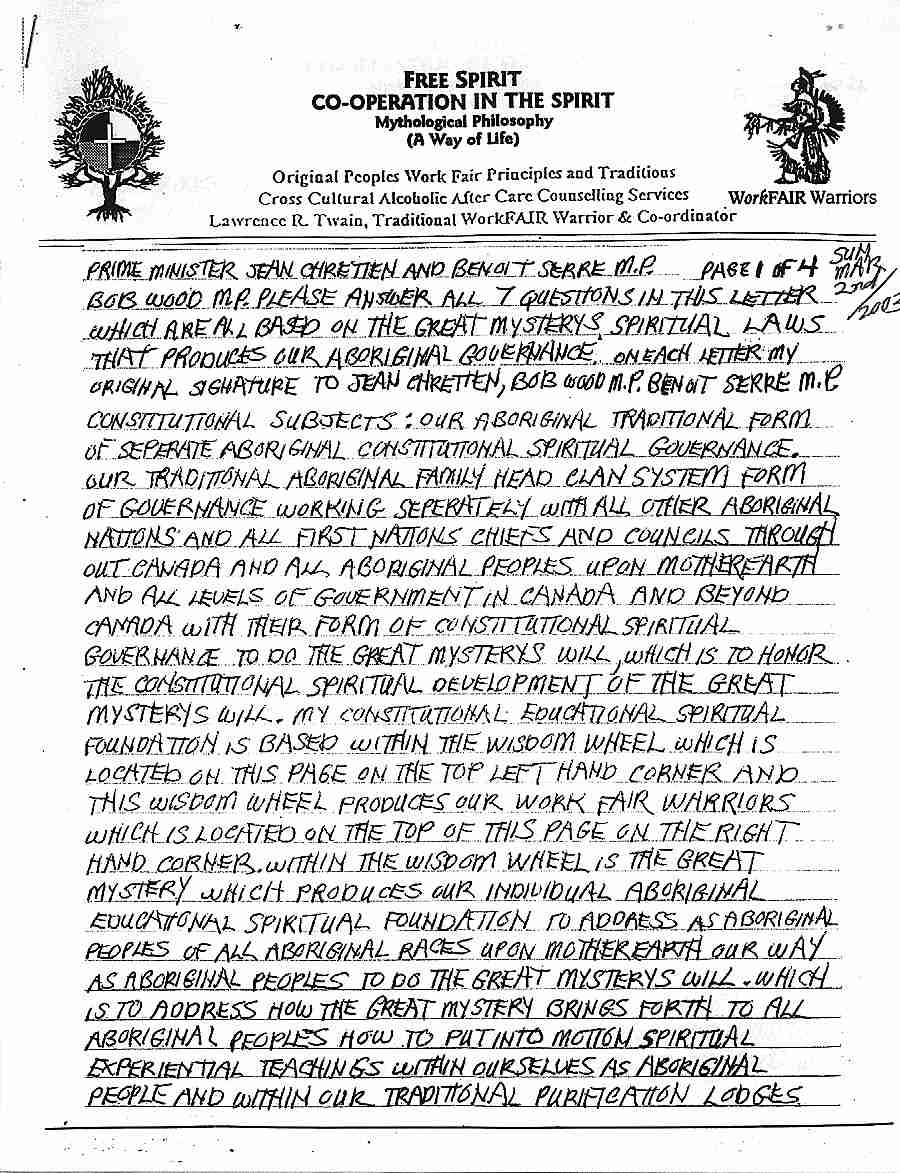 FREE SPIRIT
CO-OPERATION IN THE SPIRIT
Mythological Philosophy
(A Way of Life)
Original Peoples Work Fair Principles and Traditions
Cross Cultural Alcoholic After Care Counselling Services
Lawrence R. Twain, Traditional WorkFAIR Warrior & Co-ordinator
WorkFAIR Warriors
SUN MAR 2nd/2003
PRIME MINISTER JEAN CHRETIEN AND BENOIT SERRE M.P. PAGE 1 OF 4
BOB WOOD M.P. PLEASE ANSWER ALL 7 QUESTIONS IN THIS LETTER
WHICH ARE ALL BASED ON THE GREAT MYSTERYS SPIRITUAL LAWS
THAT PRODUCES OUR ABORIGINAL GOVERNANCE. ON EACH LETTER MY
ORIGINAL SIGHATURE TO JEAN CHRETIEN, BOB WOOD M.P. BENOIT SERRE M.P.
CONSTITUTIONAL SUBJECTS: OUR ABORIGINAL TRADITIONAL FORM
OF SEPERATE ABORIGINAL CONSTITUTIONAL SPIRITUAL GOVERNANCE.
OUR TRADITIONAL ABORIGINAL FAMILY HEAD CLAN SYSTEM FORM
OF GOVERNANCE WORKING SEPERATELY WITH ALL OTHER ABORIGINAL
NATIONS AND ALL FIRST NATIONS CHIEFS AND COUNCILS THROUGH
OUT CANADA AND ALL ABORIGINAL PEOPLES UPON MOTHER EARTH
AND ALL LEVELS OF GOVERNMENT IN CANADA AND BEYOND
CANADA WITH THEIR FORM OF CONSTITUTIONAL SPIRITUAL
GOVERNANCE TO DO THE GREAT MYSTERYS WILL, WHICH IS TO HONOR
THE CONSTITUTIONAL SPIRITUAL DEVELOPMENT OF THE GREAT
MYSTERYS WILL. MY CONSTITUTIONAL EDUCATIONAL SPIRITUAL
FOUNDATION IS BASED WITHIN THE WISDOM WHEEL WHICH IS
LOCATED ON THIS PAGE ON THE TOP LEFT HAND CORNER AND
THIS WISDOM WHEEL PRODUCES OUR WORK FAIR WARRIORS
WHICH IS LOCATED ON THE TOP OF THIS PAGE ON THE RIGHT
HAND CORNER. WITHIN THE WISDOM WHEEL IS THE GREAT
MYSTERY WHICH PRODUCES OUR INDIVIDUAL ABORIGINAL
EDUCATIONAL SPIRITUAL FOUNDATION TO ADDRESS AS ABORIGINAL
PEOPLES OF ALL ABORIGINAL RACES UPON MOTHER EARTH OUR WAY
AS ABORIGINAL PEOPLES TO DO THE GREAT MYSTERYS WILL. WHICH
IS TO ADDRESS HOW THE GREAT MYSTERY BRINGS FORTH TO ALL
ABORIGINAL PEOPLES HOW TO PUT INTO MOTION SPIRITUAL
EXPERIENTIAL TEACHINGS WITHIN OURSELVES AS ABORIGINAL
PEOPLE AND WITHIN OUR TRADITIONAL PURIFICATION LODGES